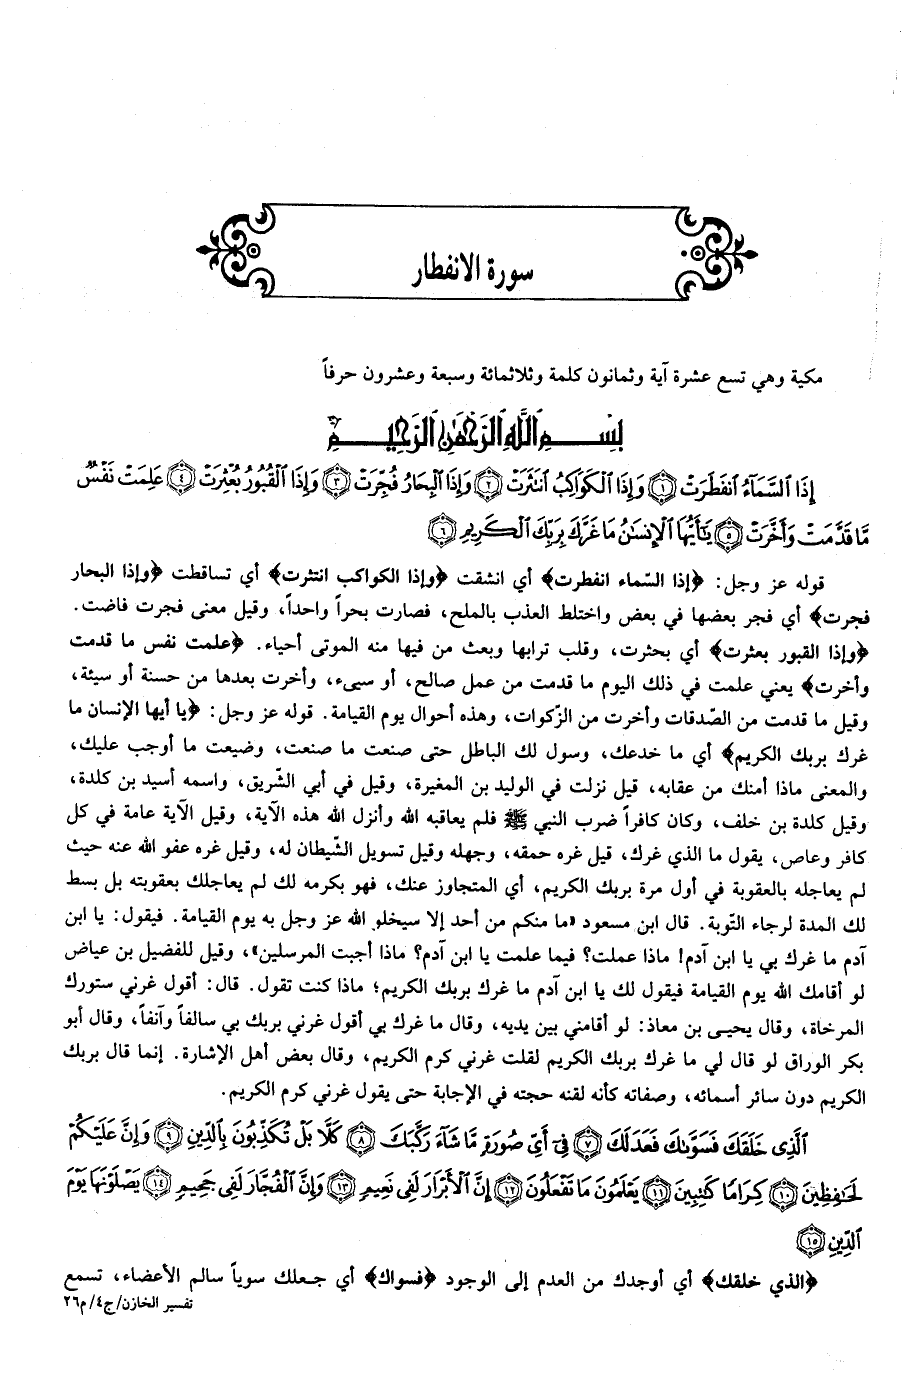 سورة الانفطار
مكية وهي تسع عشرة آية وثمانون كلمة وثلاثمائة وسبعة وعشرون حرفاً
بِسْمِ اللَّهِ الرَّحْمَٰنِ الرَّحِيمِ
إِذَا السَّمَاءُ انفَطَرَتْ ﴿١﴾ وَإِذَا الْكَوَاكِبُ انتَثَرَتْ ﴿٢﴾ وَإِذَا الْبِحَارُ فُجِّرَتْ ﴿٣﴾ وَإِذَا الْقُبُورُ بُعْثِرَتْ ﴿٤﴾ عَلِمَتْ نَفْسٌ
مَّا قَدَّمَتْ وَأَخَّرَتْ ﴿٥﴾ يَا أَيُّهَا الْإِنسَانُ مَا غَرَّكَ بِرَبِّكَ الْكَرِيمِ ﴿٦﴾
قوله عز وجل: ﴿إذا السّماء انفطرت﴾ أي انشقت ﴿وإذا الكواكب انتثرت﴾ أي تساقطت ﴿وإذا البحار
فجرت﴾ أي فجر بعضها في بعض واختلط العذب بالملح، فصارت بحراً واحداً، وقيل معنى فجرت فاضت.
﴿وإذا القبور بعثرت﴾ أي بحثرت، وقلب ترابها وبعث من فيها منه الموتى أحياء. ﴿علمت نفس ما قدمت
وأخرت﴾ يعني علمت في ذلك اليوم ما قدمت من عمل صالح، أو سيىء، وأخرت بعدها من حسنة أو سيئة،
وقيل ما قدمت من الصّدقات وأخرت من الزّكوات، وهذه أحوال يوم القيامة. قوله عز وجل: ﴿يا أيها الإنسان ما
غرك بربك الكريم﴾ أي ما خدعك، وسول لك الباطل حتى صنعت ما صنعت، وضيعت ما أوجب عليك،
والمعنى ماذا أمنك من عقابه، قيل نزلت في الوليد بن المغيرة، وقيل في أبي الشّريق، واسمه أسيد بن كلدة،
وقيل كلدة بن خلف، وكان كافراً ضرب النبي ﷺ فلم يعاقبه الله وأنزل الله هذه الآية، وقيل الآية عامة في كل
كافر وعاص، يقول ما الذي غرك، قيل غره حمقه، وجهله وقيل تسويل الشّيطان له، وقيل غره عفو الله عنه حيث
لم يعاجله بالعقوبة في أول مرة بربك الكريم، أي المتجاوز عنك، فهو بكرمه لك لم يعاجلك بعقوبته بل بسط
لك المدة لرجاء التّوبة. قال ابن مسعود «ما منكم من أحد إلا سيخلو الله عز وجل به يوم القيامة. فيقول: يا ابن
آدم ما غرك بي يا ابن آدم! ماذا عملت؟ فيما علمت يا ابن آدم؟ ماذا أجبت المرسلين»، وقيل للفضيل بن عياض
لو أقامك الله يوم القيامة فيقول لك يا ابن آدم ما غرك بربك الكريم؛ ماذا كنت تقول. قال: أقول غرني ستورك
المرخاة، وقال يحيى بن معاذ: لو أقامني بين يديه، وقال ما غرك بي أقول غرني بربك بي سالفاً وآنفاً، وقال أبو
بكر الوراق لو قال لي ما غرك بربك الكريم لقلت غرني كرم الكريم، وقال بعض أهل الإشارة. إنما قال بربك
الكريم دون سائر أسمائه، وصفاته كأنه لقنه حجته في الإجابة حتى يقول غرني كرم الكريم.
الَّذِي خَلَقَكَ فَسَوَّاكَ فَعَدَلَكَ ﴿٧﴾ فِي أَيِّ صُورَةٍ مَّا شَاءَ رَكَّبَكَ ﴿٨﴾ كَلَّا بَلْ تُكَذِّبُونَ بِالدِّينِ ﴿٩﴾ وَإِنَّ عَلَيْكُمْ
لَحَافِظِينَ ﴿١٠﴾ كِرَامًا كَاتِبِينَ ﴿١١﴾ يَعْلَمُونَ مَا تَفْعَلُونَ ﴿١٢﴾ إِنَّ الْأَبْرَارَ لَفِي نَعِيمٍ ﴿١٣﴾ وَإِنَّ الْفُجَّارَ لَفِي جَحِيمٍ ﴿١٤﴾ يَصْلَوْنَهَا يَوْمَ
الدِّينِ ﴿١٥﴾
﴿الذي خلقك﴾ أي أوجدك من العدم إلى الوجود ﴿فسواك﴾ أي جعلك سوياً سالم الأعضاء، تسمع
تفسير الخازن/ج٤/م٢٦